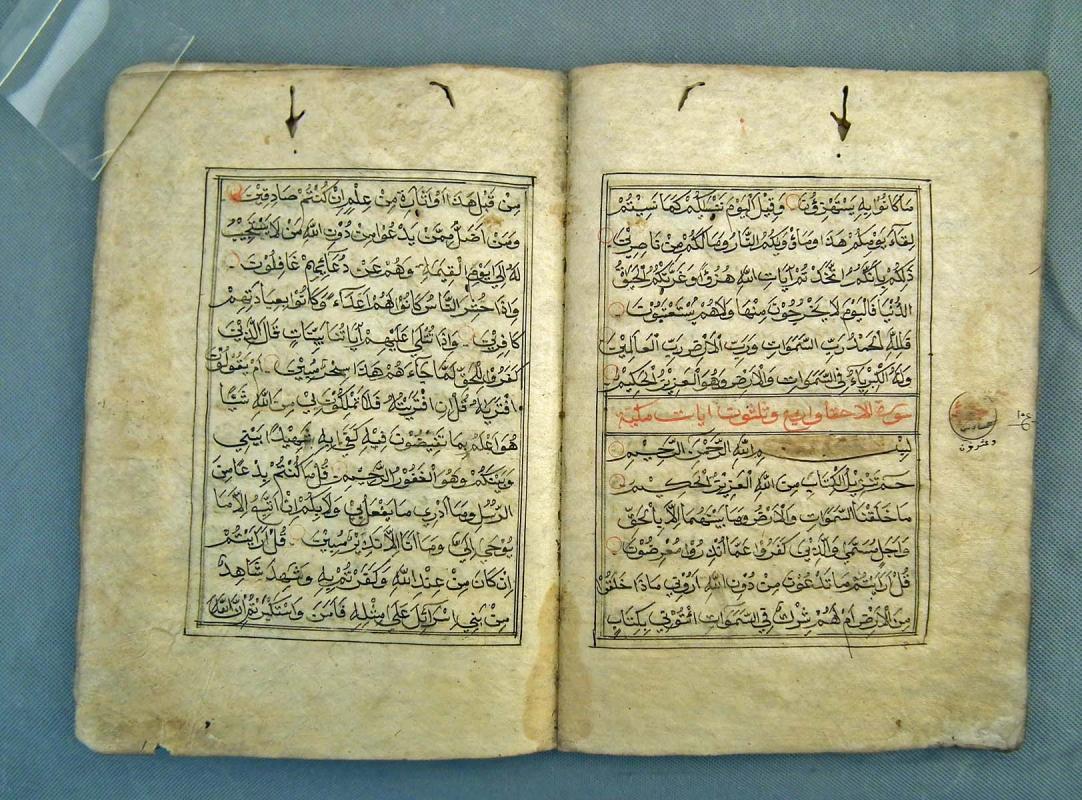 ما كانوا به يستهزؤن وقيل اليوم ننسكم كما نسيتم
لقاء يومكم هذا وماويكم النار ومالكم من ناصرين
ذلكم بانكم اتخذتم آيات الله هزوا وغرتكم الحيوة
الدنيا فاليوم لا يخرجون منها ولاهم يستعتبون
فلله الحمد رب السموات ورب الارض رب العالمين
وله الكبرياء في السموات والارض وهو العزيز الحكيم
سورة الاحقاو اربع وثلثون ايات مكية
بسم الله الرحمن الرحيم
حم تنزيل الكتاب من الله العزيز الحكيم
ما خلقنا السموات والارض وما بينهما الا بالحق
واجل مسمى والذين كفروا عما انذروا معرضون
قل ارايتم ما تدعون من دون الله اروني ماذا خلقوا
من الارض ام لهم شرك في السموات ائتوني بكتاب
من قبل هذا او اثارة من علم ان كنتم صادقين
ومن اضل ممن يدعوا من دون الله من لا يستجيب
له الى يوم القيمة وهم عن دعائهم غافلون
واذا حشر الناس كانوا لهم اعداء وكانوا بعبادتهم
كافرين واذا تتلى عليهم آياتنا بينات قال الذين
كفروا للحق لما جاءهم هذا سحر مبين ام يقولون
افتريه قل ان افتريته فلا تملكون لي من الله شيئا
هو اعلم بما تفيضون فيه كفى به شهيدا بيني
وبينكم وهو الغفور الرحيم قل ما كنتم بدعا من
الرسل وما ادري ما يفعل بي ولا بكم ان اتبع الا ما
يوحى الي وما انا الا نذير مبين قل ارايتم
ان كان من عند الله وكفرتم به وشهد شاهد
من بني اسرائل على مثله فامن واستكبرتم ان الله